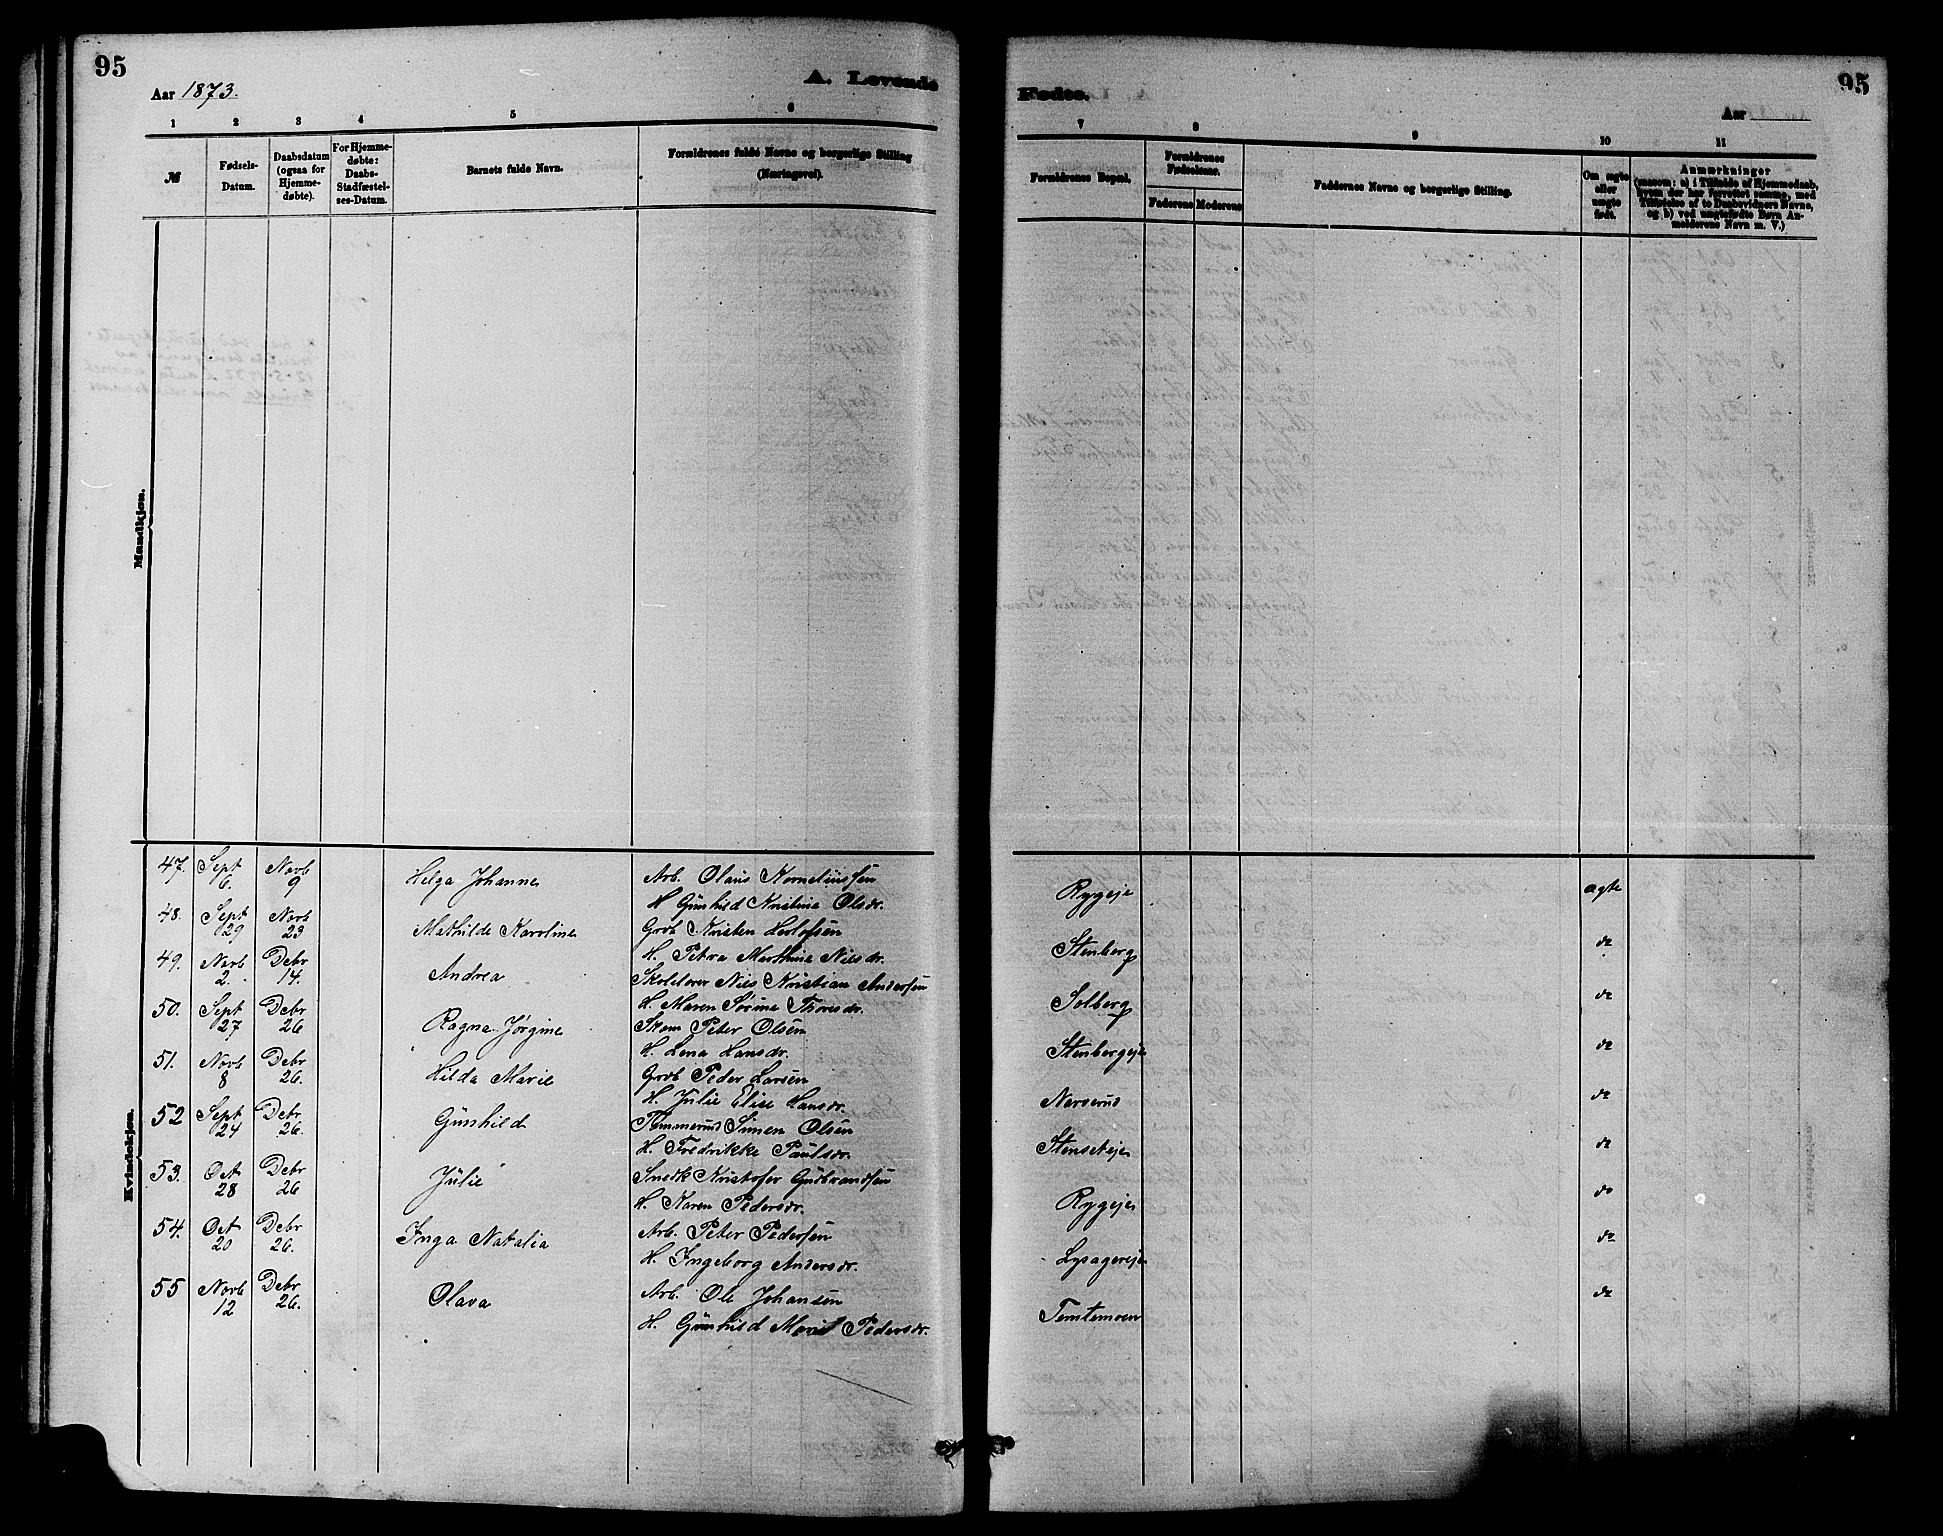 95
Aar 1873.
A. Levende
1 2 3 4 5 6
№
Fødsels-Datum.
Daabsdatum (ogsaa for Hjemme-døbte).
For Hjemme-døbte: Daabs-Stadfæstel-ses-Datum.
Barnets fulde Navn.
Forældrenes fulde Navne og borgerlige Stilling (Næringsvei).
Mandkjøn.
Kvindekjøn.
47. Sept 6. Novb 9 Helga Johanne Arb. Olaus Korneliussen
H Gunhild Kristine Olsdr.
48. Sept 29 Novb 23 Mathilde Karoline Grdb Kristen Herlofsen
H. Petra Marthine Nilsdr.
49. Novb 2. Debr 14. Andrea Skolelærer Nils Kristian Andersen
H. Maren Sørine Thoresdr.
50. Sept 27 Debr 26 Ragna Jørgine Skom Peter Olsen
H. Lena Hansdr.
51. Novb 8 Debr 26. Hilda Marie Grdb Peder Larsen
H. Julie Elise Hansdr.
52 Sept 24 Debr 26. Gunhild Tømmermd Simen Olsen
H. Fredrikke Paulsdr.
53. Oct 28 Debr 26 Julie Snedk Kristofer Gudbrandsen
H. Karen Pedersdr.
54. Oct 20 Debr 26. Inga Natalia Arb. Peter Pedersen
H. Ingeborg Andersdr.
55 Novb 12 Debr 26. Olava Arb. Ole Johansen
H. Gunhild Marie Pedersdr.
95
Fødte.
Aar
7 8 9 10 11
Forældrenes Bopæl.
Forældrenes Fødselsaar.
Faderens Moderens
Faddernes Navne og borgerlige Stilling.
Om ægte eller uægte født.
Anmærkninger
(saasom: a) i Tilfælde af Hjemmedaab, hvem der har forrettet samme, med Tilføielse af to Daabsvidners Navne, og b) ved uægtefødte Børn An-melderens Navn m. V.)
Rygeje ægte
Stenberg do
Solberg do
Stenbergeje do
Narverud do
Stenseteje do
Rygeje do
Lysagereje do
Temtemoen do